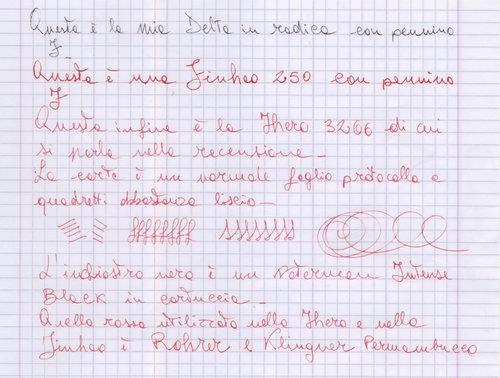 Questa è la mia Delta in radica con pennino
F -
Questa è una Jinhao 250 con pennino
F
Questa infine è la Hero 3266 di cui
si parla nella recensione -
La carta è un normale foglio protocollo a
quadretti abbastanza liscio -
L'inchiostro nero è un Waterman Intense
Black in cartuccia. -
Quello rosso utilizzato nella Hero e nella
Jinhao è Rohrer e Klingner Pernambucco